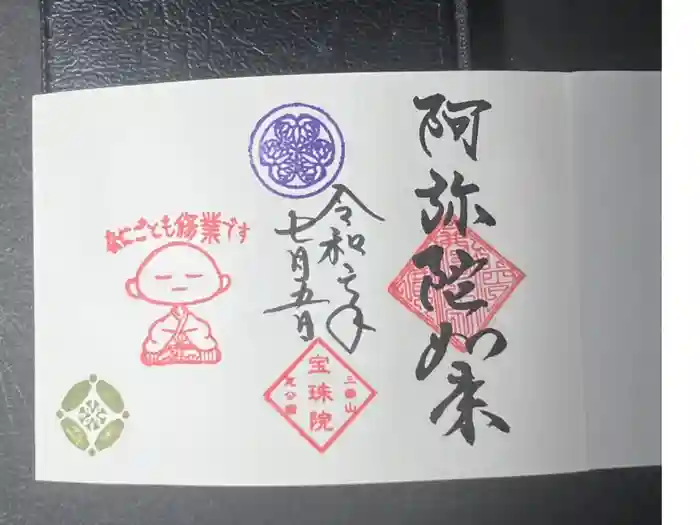 阿弥陀如来
令和元年
七月五日
三縁山
宝珠院
芝公園
なにごとも修業です